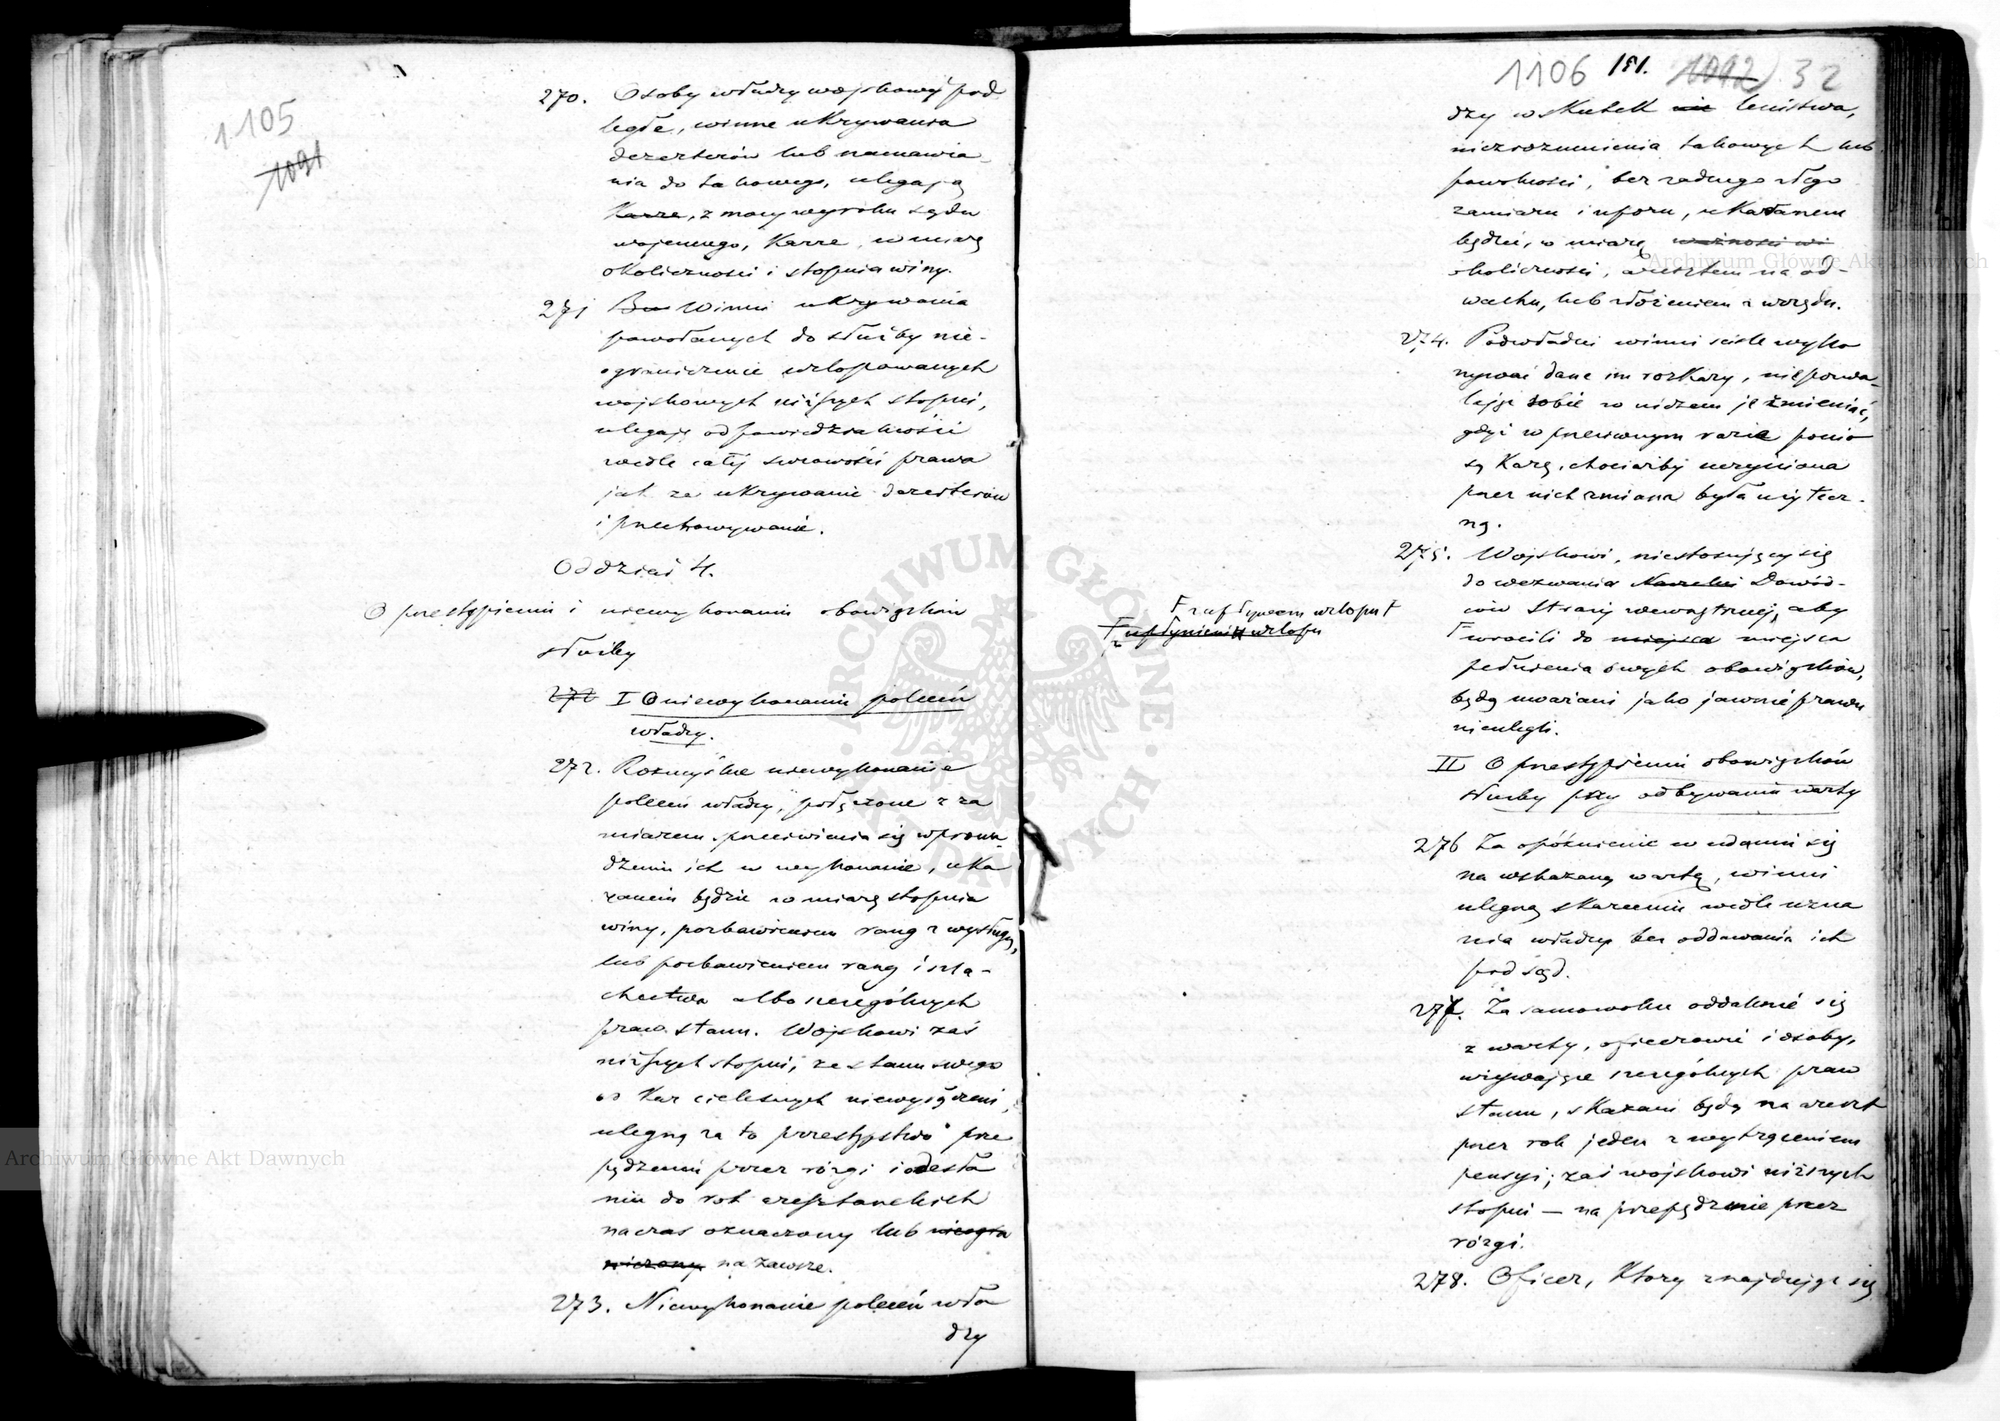 1105
1091
270. Osoby władzy wojskowéj pod
ległe, winne ukrywania
dezerterów lub namawia-
nia do takowego, ulegają
Karze, z mocy wyroku sądu
wojennego, Karze, w miarę
okoliczności i stopnia winy.
271 Winni ukrywania
powołanych do służby nie-
ograniczenie urlopowanych
wojskowych niższych stopni,
ulegają odpowiedzialności
wedle całéj surowości prawa
jak za ukrywanie dezerterów
i przechowywanie.
Oddział 4.
O przestąpieniu i niewykonaniu obowiązków
służby
272 I O niewykonaniu poleceń
władzy.
272. Rozmyślne niewykonanie
poleceń władzy, połączone z za
miarem przeciwienia się wprowa-
dzeniu ich w wykonanie, uka
ranem będzie w miarę stopnia
winy, pozbawieniem rang z wysługą,
lub pozbawieniem rang i szla-
chectwa albo szczególnych
praw stanu. Wojskowi zaś
niższych stopni, ze stanu swego
od kar cielesnych niewyłączeni,
ulegną za to przestępstwo prze
pędzeniu przez rózgi i odesła
niu do rot aresztanckich
na czas oznaczony lub nieogra
niczony na zawsze.
273. Niewykonanie poleceń wła
dzy
1106 191. 1092 32
dzy w skutek nie lenistwa,
niezrozumienia takowych lub
powolności, bez żadnego złego
zamiaru i uporu, ukaranem
będzie, w miarę ważności wi
okoliczności, aresztem na od-
wachu, lub złożeniem z urzędu.
274. Podwładni winni ściśle wyko
nywać dane im rozkazy, niepozwa-
lając sobie w niczem je zmieniać,
gdyż w przeciwnym razie ponio
są karę, chociażby uczyniona
przez nich zmiana była użytecz-
ną.
275. Wojskowi, niestosujący się
do wezwania Naczelni Dowód-
ców Straży wewnętrznej, aby
F z upływem urlopu F
F z upłynieniem urlopu
F wrócili do miejsca miejsca
pełnienia swych obowiązków,
będą uważani jako jawnie prawu
nieulegli.
II O przestąpieniu obowiązków
służby przy odbywaniu warty
276 Za opóźnienie w udaniu się
na wskazaną wartę, winni
ulegną skarceniu wedle uzna
nia władzy bez oddawania ich
pod sąd.
277. Za samowolne oddalenie się
z warty, oficerowie i osoby,
używające szczególnych praw
stanu, skazani będą na areszt
przez rok jeden z wytrąceniem
pensyi; zaś wojskowi niższych
stopni — na przepędzenie przez
rózgi.
278. Oficer, Który znajdując się
Archiwum Główne Akt Dawnych
Archiwum Główne Akt Dawnych
ARCHIWUM GŁÓWNE AKT DAWNYCH